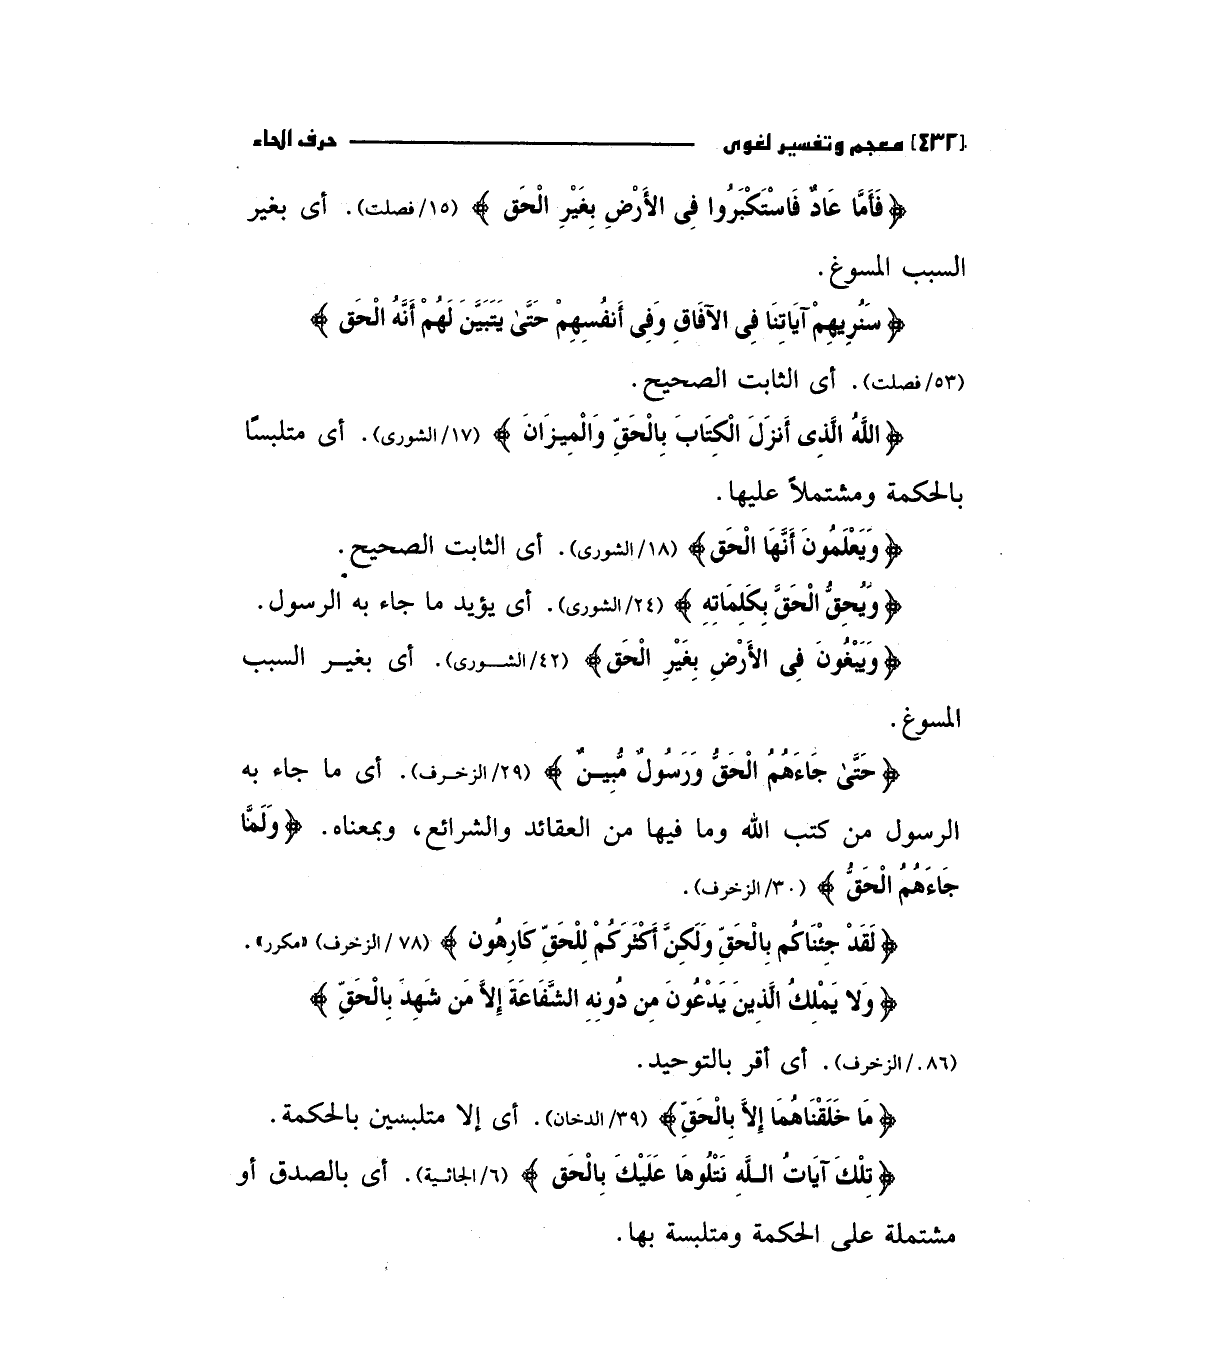 [٤٣٢] معجم وتفسير لغوى ــــــــــــــــ حرف الحاء
﴿ فَأَمَّا عَادٌ فَاسْتَكْبَرُوا فِى الأَرْضِ بِغَيْرِ الْحَق ﴾ (١٥/ فصلت). أى بغير
السبب المسوغ.
﴿ سَنُرِيهِمْ آيَاتِنَا فِى الآفَاقِ وَفِى أَنفُسِهِمْ حَتَّىٰ يَتَبَيَّنَ لَهُمْ أَنَّهُ الْحَق ﴾
(٥٣/ فصلت). أى الثابت الصحيح.
﴿ اللَّهُ الَّذِى أَنزَلَ الْكِتَابَ بِالْحَقِّ وَالْمِيزَانَ ﴾ (١٧/ الشورى). أى متلبسًا
بالحكمة ومشتملاً عليها.
﴿ وَيَعْلَمُونَ أَنَّهَا الْحَق﴾ (١٨/ الشورى). أى الثابت الصحيح.
﴿ وَيُحِقُّ الْحَقَّ بِكَلِمَاتِهِ ﴾ (٢٤/ الشورى). أى يؤيد ما جاء به الرسول.
﴿ وَيَبْغُونَ فِى الأَرْضِ بِغَيْرِ الْحَق﴾ (٤٢/ الشـــورى). أى بغيــر السبب
المسوغ.
﴿ حَتَّىٰ جَاءَهُمُ الْحَقُّ وَرَسُولٌ مُّبِيـنٌ ﴾ (٢٩/ الزخـرف). أى ما جاء به
الرسول من كتب الله وما فيها من العقائد والشرائع، وبمعناه. ﴿ وَلَمَّا
جَاءَهُمُ الْحَقُّ ﴾ (٣٠/ الزخرف).
﴿ لَقَدْ جِئْنَاكُم بِالْحَقِّ وَلَكِنَّ أَكْثَرَكُمْ لِلْحَقِّ كَارِهُون ﴾ (٧٨ / الزخرف) «مكرر».
﴿ وَلا يَمْلِكُ الَّذِينَ يَدْعُونَ مِن دُونِهِ الشَّفَاعَةَ إِلاَّ مَن شَهِدَ بِالْحَقِّ ﴾
(٨٦./ الزخرف). أى أقر بالتوحيد.
﴿ مَا خَلَقْنَاهُمَا إِلاَّ بِالْحَقِّ﴾ (٣٩/ الدخان). أى إلا متلبسين بالحكمة.
﴿ تِلْكَ آيَاتُ اللـَّهِ نَتْلُوهَا عَلَيْكَ بِالْحَق ﴾ (٦/ الجاثـية). أى بالصدق أو
مشتملة على الحكمة ومتلبسة بها.